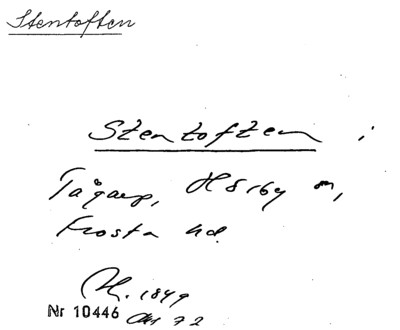 Stentoften
Stentoften i
Tågarp, Hörby sn,
Frosta hd.
H. 1849
Nr 10446 Akt 72